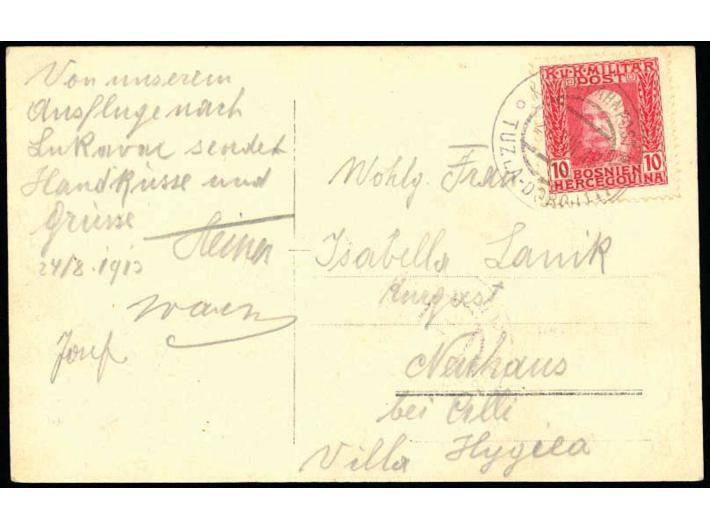 Von unserem
Ausfluge nach
Lukavac sendet
Handküsse und
Grüsse
Heiner
24/8. 1913
Josef
K.u.K. MILITÄR
POST
10 10
BOSNIEN
HERCEGOVINA
TUZLA
Wohlg. Frau
Isabella Lanik
Kurgast
Neuhaus
bei Cilli
Villa Hygiea